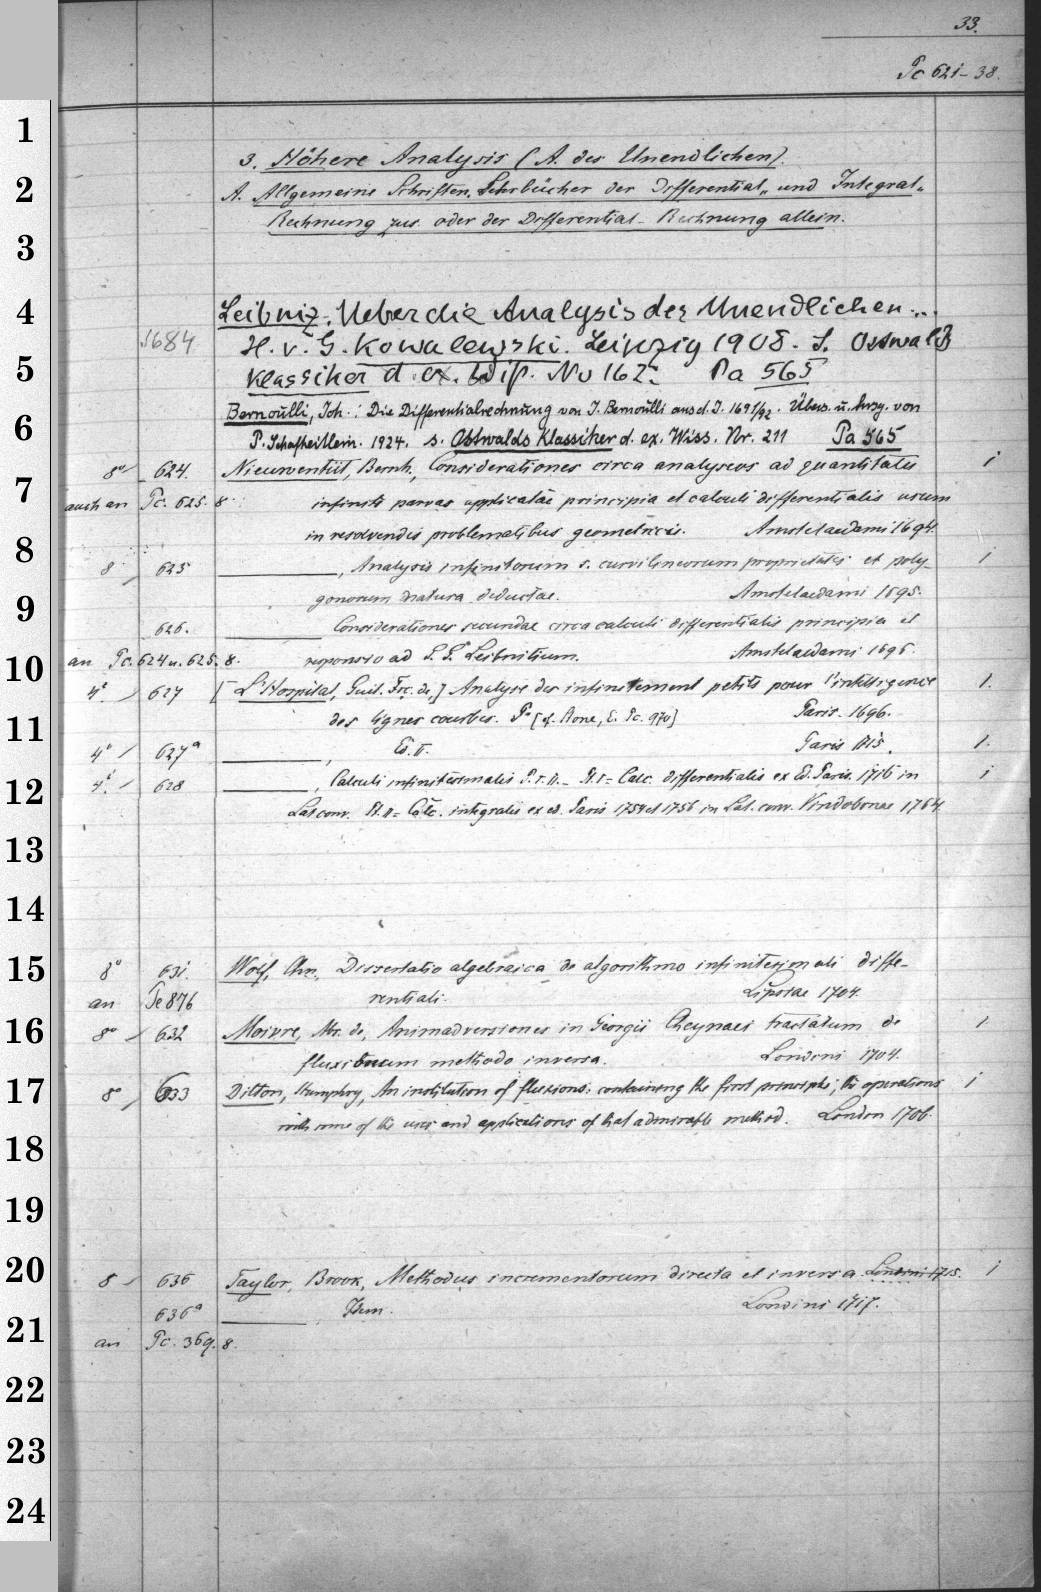 33.
Pc 621-38.
3. Höhere Analysis (A. des Unendlichen).
A. Allgemeine Schriften. Lehrbücher der Differential- und Integral-
Rechnung zus. oder der Differential-Rechnung allein.
Leibniz, Ueber die Analysis des Unendlichen...
1684 H. v. G. Kowalewski. Leipzig 1908. S. Ostwald's
Klassiker d. ex. Wiss. No 162. Pa 565
Bernoulli, Joh.: Die Differentialrechnung von J. Bernoulli aus d. J. 1691/92. Übers. u. hrsg. von
P. Schafheitlein. 1924. s. Ostwalds Klassiker d. ex. Wiss. Nr. 211 Pa 565
8° 624. Nieuwentiit, Bernh., Considerationes circa analyseos ad quantitates 1
auch an Pc. 625. 8. infinite parvas applicatae principia et calculi differentialis usum
in resolvendis problematibus geometricis. Amstelaedami 1694.
8 625 , Analysis infinitorum s. curvilineorum proprietates et poly- 1
gonorum natura deductae. Amstelaedami 1695.
626. Considerationes secundae circa calculi differentialis principia et
an Pc. 624 u. 625. 8. responsio ad G. G. Leibnitium. Amstelaedami 1696.
4° 627 [L'Hospital, Guil. Frç. de,] Analyse des infiniment petits pour l'intelligence 1.
des lignes courbes. P. [cf. Rone, E. Pc. 970] Paris. 1696.
4° 627a , Ed. II. Paris 1715. 1.
4° 628 , Calculi infinitesimalis P. I. II. - P. I = Calc. differentialis ex Ed. Paris. 1716 in 1
Lat. conv. P. II = Calc. integralis ex ed. Paris 1754 et 1756 in Lat. conv. Vindobonae 1764.
8° 631. Wolf, Chr., Dissertatio algebraica de algorithmo infinitesimali diffe-
an Pe 876 rentiali. Lipsiae 1704.
8° 632 Moivre, Abr. de, Animadversiones in Georgii Cheynaei tractatum de 1
fluxionum methodo inversa. Londini 1704.
8° 633 Ditton, Humphry, An institution of fluxions: containing the first principles, the operations 1
with some of the uses and applications of that admirable method. London 1706.
8 636 Taylor, Brook, Methodus incrementorum directa et inversa. Londini 1715. 1
636a Idem. Londini 1717.
an Pc. 369. 8.
1
2
3
4
5
6
7
8
9
10
11
12
13
14
15
16
17
18
19
20
21
22
23
24